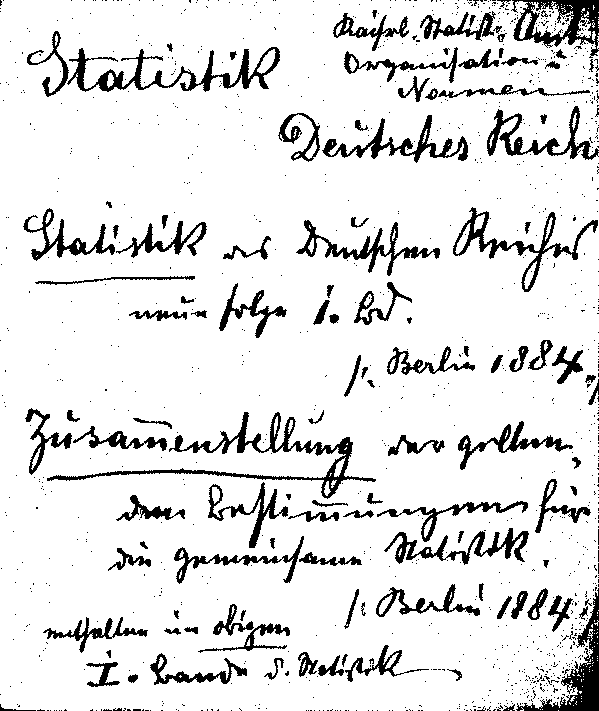 Statistik
Kaiserl. Statist. Amt
Organisation u
Normen
Deutsches Reich
Statistik des Deutschen Reiches
neue folge 1. Bd.
/: Berlin 1884. :/
Zusammenstellung der gelten-
den Bestimmungen für
die gemeinsame Statistik.
/: Berlin 1884 :/
enthalten im obigen
I. Bande d. Statistik